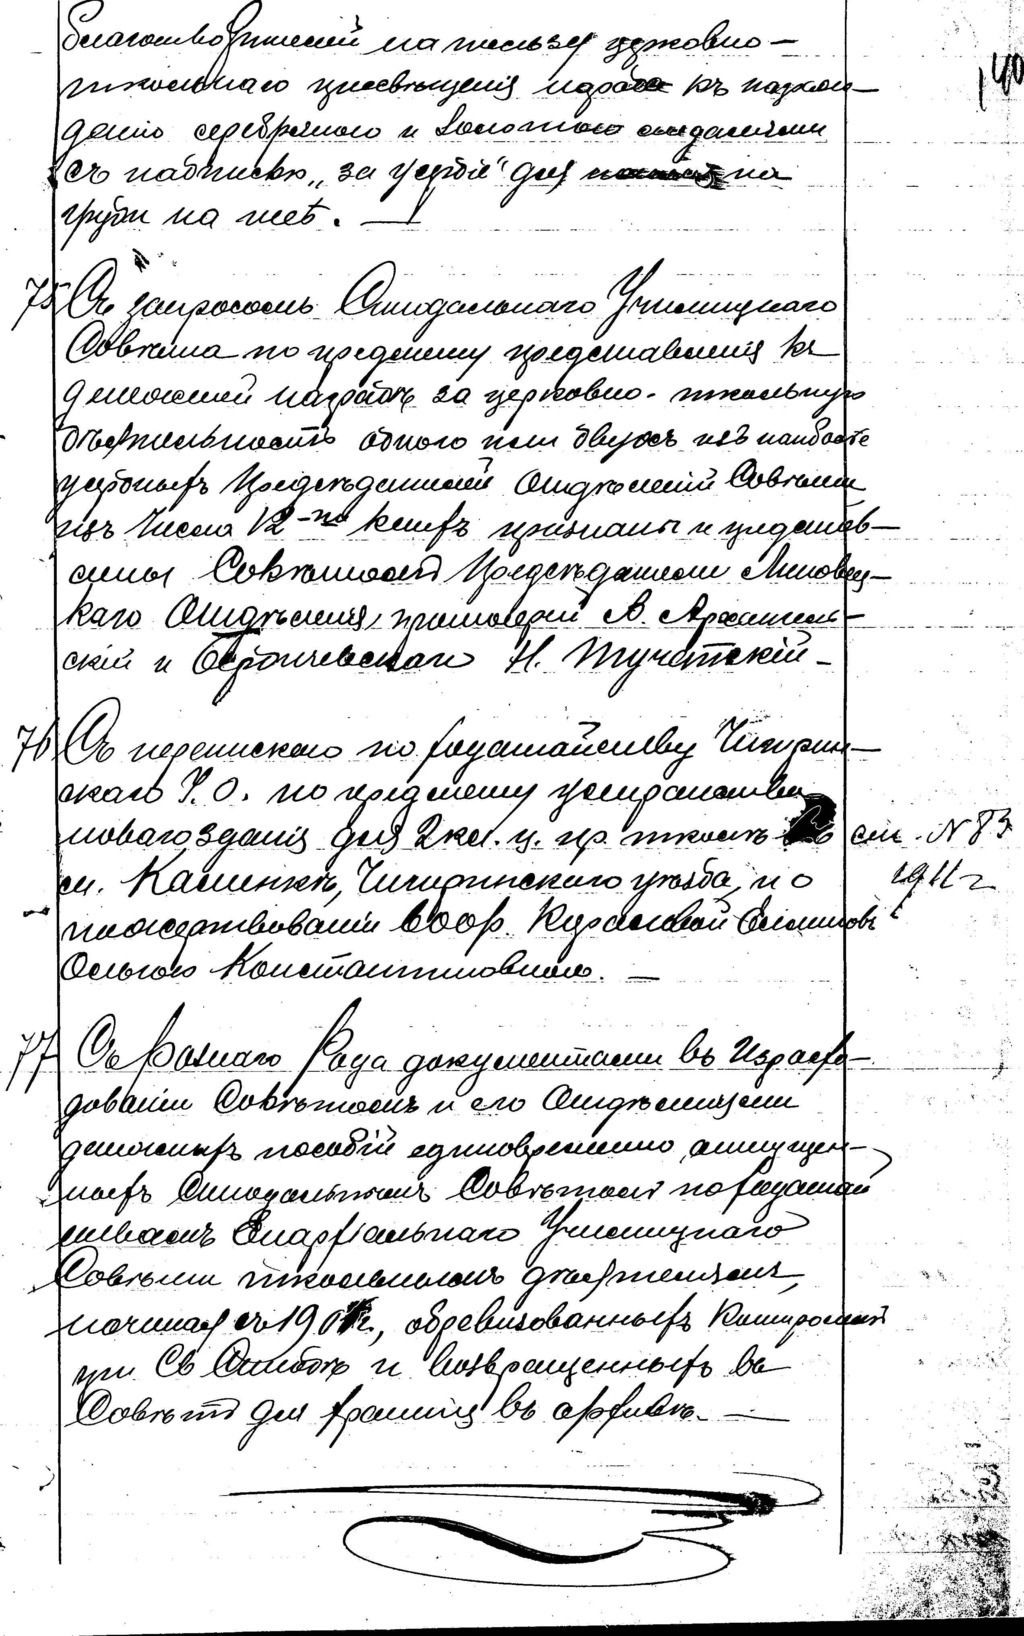 благотворителей на пользу церковно-
школьнаго просвещенія народа къ награж-
денію серебряною и золотою медалями
съ надписью „за усердіе" для на
груди на шеѣ. —
140
75 Съ запросомъ Синодальнаго Училищнаго
Совѣта по предмету представленія къ
денежной наградѣ за церковно-школьную
дѣятельность одного или двухъ изъ наиболѣе
усердныхъ Предсѣдателей Отдѣленій Совѣта
изъ числа 12-ти коихъ признаны и представ-
лены Совѣтомъ Предсѣдатели Липовец-
каго Отдѣленія, протоіерей А. Архангель-
скій и Бердичевскаго Н. Тучапскій –
76 Съ перепискою по ходатайству Чигирин-
скаго У. О. по предмету устройства
новаго зданія для 2 кл. ц. пр. школы въ
м. Каменкѣ, Чигиринскаго уѣзда, и о
пожертвованіи 6000 р. Елисаветовой
Ольгою Константиновною. —
см. N 83
1911 г
77 Съ разнаго рода документами въ израсхо-
дованіи Совѣтомъ и его Отдѣленіями
денежныхъ пособій единовременно отпущен-
ныхъ Синодальнымъ Совѣтомъ по ходатай
ствамъ Епархіальнаго Училищнаго
Совѣта школьнымъ дѣятелямъ,
начиная съ 190 г., обревизованныхъ Контролемъ
при Св Синодѣ и возвращенныхъ въ
Совѣтъ для храненія въ архивѣ. —